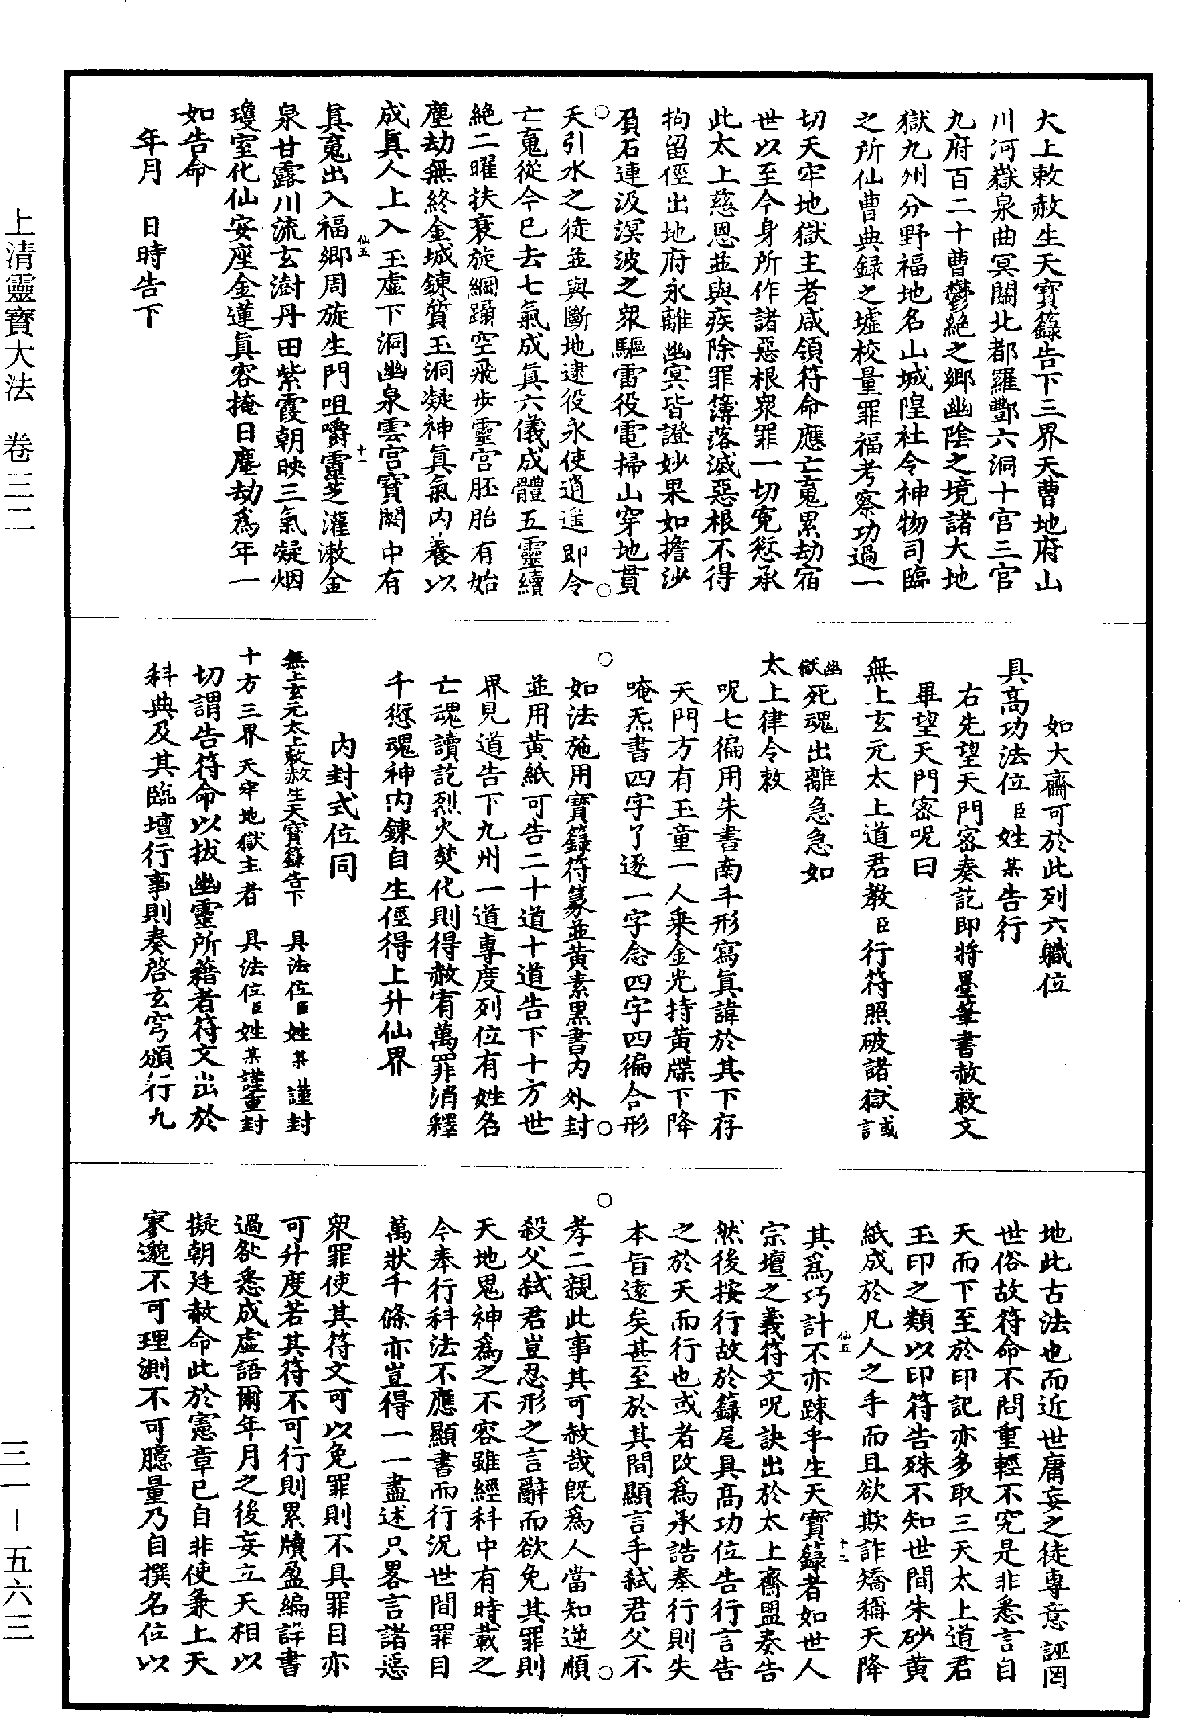 太上敕赦生天寶籙告下三界天曹地府山
川河嶽泉曲冥關北都羅酆六洞十宮三官
九府百二十曹鬱絕之鄉幽陰之境諸大地
獄九州分野福地名山城隍社令神物司臨
之所仙曹典錄之墟校量罪福考察功過一
切天牢地獄主者咸領符命應亡䰟累劫宿
世以至今身所作諸惡根眾罪一切冤愆承
此太上慈恩並與疾除罪簿落滅惡根不得
拘留徑出地府永離幽冥皆證妙果如擔沙
負石連汲溟波之眾驅雷役電掃山穿地貫
天引水之徒並與斷地逮役永使逍遙即令
亡䰟從今已去七氣成真六儀成體五靈續
絕二曜扶衰旋綱躡空飛步靈宮胚胎有始
塵劫無終金城鍊質玉洞凝神真氣內養以
成真人上入玉虛下洞幽泉雲宮寶闕中有
仙五
十一
真䰟出入福鄉周旋生門咀嚼靈芝灌漱金
泉甘露川流玄澍丹田紫霞朝映三氣凝烟
瓊室化仙安座金蓮真容掩日塵劫為年一
如告命
年月 日時告下
如大齋可於此列六職位
具高功法位臣姓某告行
右先望天門密奏訖即將墨筆書赦敕文
畢望天門密呪曰
無上玄元太上道君教臣行符照破諸獄或言
幽獄死魂出離急急如
太上律令敕
呪七徧用朱書南斗形寫真諱於其下存
天門方有玉童一人乘金光持黃牒下降
唵炁書四字了逐一字念四字四徧合形
如法施用寶籙符篆並黃素黑書內外封
並用黃紙可告二十道十道告下十方世
界見道告下九州一道專度列位有姓名
亡魂讀訖烈火焚化則得赦宥萬罪消釋
千愆魂神內鍊自生徑得上升仙界
內封式位同
無上玄元太上敕赦生天寶籙告下 具法位臣姓某謹封
十方三界天牢地獄主者 具法位臣姓某謹重封
切謂告符命以拔幽靈所藉者符文出於
科典及其臨壇行事則奏啓玄穹頒行九
地此古法也而近世庸妄之徒專意誣罔
世俗故符命不問重輕不究是非悉言自
天而下至於印記亦多取三天太上道君
玉印之類以印符告殊不知世間朱砂黃
紙成於凡人之手而且欲欺詐矯稱天降
仙五
十二
其為巧計不亦踈乎生天寶籙者如世人
宗壇之義符文呪訣出於太上齋盟奏告
然後按行故於籙尾具高功位告行言告
之於天而行也或者改為承誥奉行則失
本旨遠矣甚至於其間顯言手弒君父不
孝二親此事其可赦哉既為人當知逆順
殺父弒君豈忍形之言辭而欲免其罪則
天地鬼神為之不容雖經科中有時載之
今奉行科法不應顯書而行況世間罪目
萬狀千條亦豈得一一盡述只畧言諸惡
眾罪使其符文可以免罪則不具罪目亦
可升度若其符不可行則累牘盈編詳書
過咎悉成虛語爾年月之後妄立天相以
擬朝廷赦命此於憲章已自非使兼上天
寥邈不可理測不可臆量乃自撰名位以
上清靈寶大法 卷三二
三一－五六三